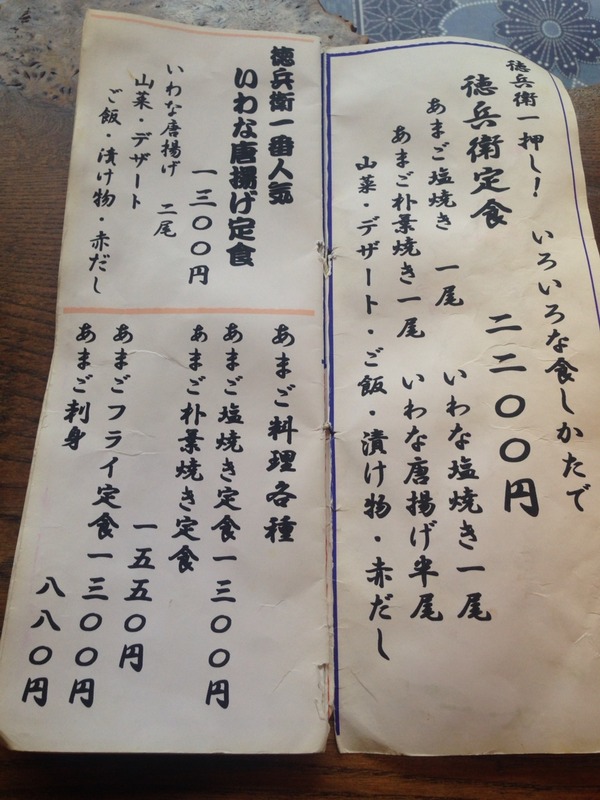 徳兵衛一押し！いろいろな食しかたで
徳兵衛定食 二二〇〇円
あまご塩焼き 一尾 いわな塩焼き一尾
あまご朴葉焼き一尾 いわな唐揚げ半尾
山菜・デザート・ご飯・漬け物・赤だし
徳兵衛一番人気
いわな唐揚げ定食
一三〇〇円
いわな唐揚げ 二尾
山菜・デザート
ご飯・漬け物・赤だし
あまご料理各種
あまご塩焼き定食一三〇〇円
あまご朴葉焼き定食
一五五〇円
あまごフライ定食一三〇〇円
あまご刺身
八八〇円